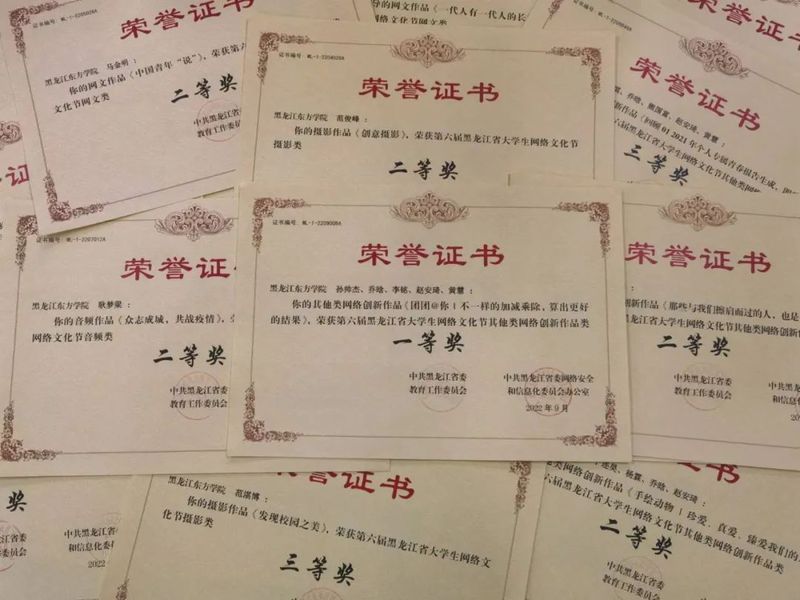 荣誉证书
黑龙江东方学院 马金明：
你的网文作品《中国青年“说”》，荣获第六
文化节网文类
二等奖
中共黑龙江省委
教育工作委员会
的网文作品《一代人有一代人的长
网络文化节网文类
荣誉证书
黑龙江东方学院 范俊峰：
你的摄影作品《创意摄影》，荣获第六届黑龙江省大学生网络文化节
摄影类
二等奖
荣誉证书
荣誉证书
乔晗、熊国富、赵安琦、黄慧：
新作品《回顾01 2021年个人专属青春报告生成，
六届黑龙江省大学生网络文化节其他类网络
三等奖
证书编号：WL-1-2207012A
荣誉证
黑龙江东方学院 耿梦梁：
你的音频作品《众志成城，共战疫情》，
网络文化节音频类
二等奖
中共黑龙江省委
教育工作委员会
证书编号：WL-1-2209008A
荣誉证书
黑龙江东方学院 孙帅杰、乔晗、李铭、赵安琦、黄慧：
你的其他类网络创新作品《团团@你 | 不一样的加减乘除，算出更好
的结果》，荣获第六届黑龙江省大学生网络文化节其他类网络创新作品类
一等奖
中共黑龙江省委
教育工作委员会
中共黑龙江省委网络安全
和信息化委员会办公室
2022年9月
荣誉证书
创新作品《那些与我们擦肩而过的人，也是
江省大学生网络文化节其他类网络创新
二等奖
中共黑龙江省委
教育工作委员会
奖
中共黑龙江
和信息化委
2022
荣誉证书
黑龙江东方学院 范淇博：
你的摄影作品《发现校园之美》，荣获第六届黑龙江省大学生网络文
化节摄影类
三等奖
证书
杨震、乔晗、赵安琦：
类网络创新作品《手绘动物 | 珍爱、真爱、臻爱我们的
六届黑龙江省大学生网络文化节其他类网络创新作品类
二等奖
中共黑龙江省委
教育工作委员会